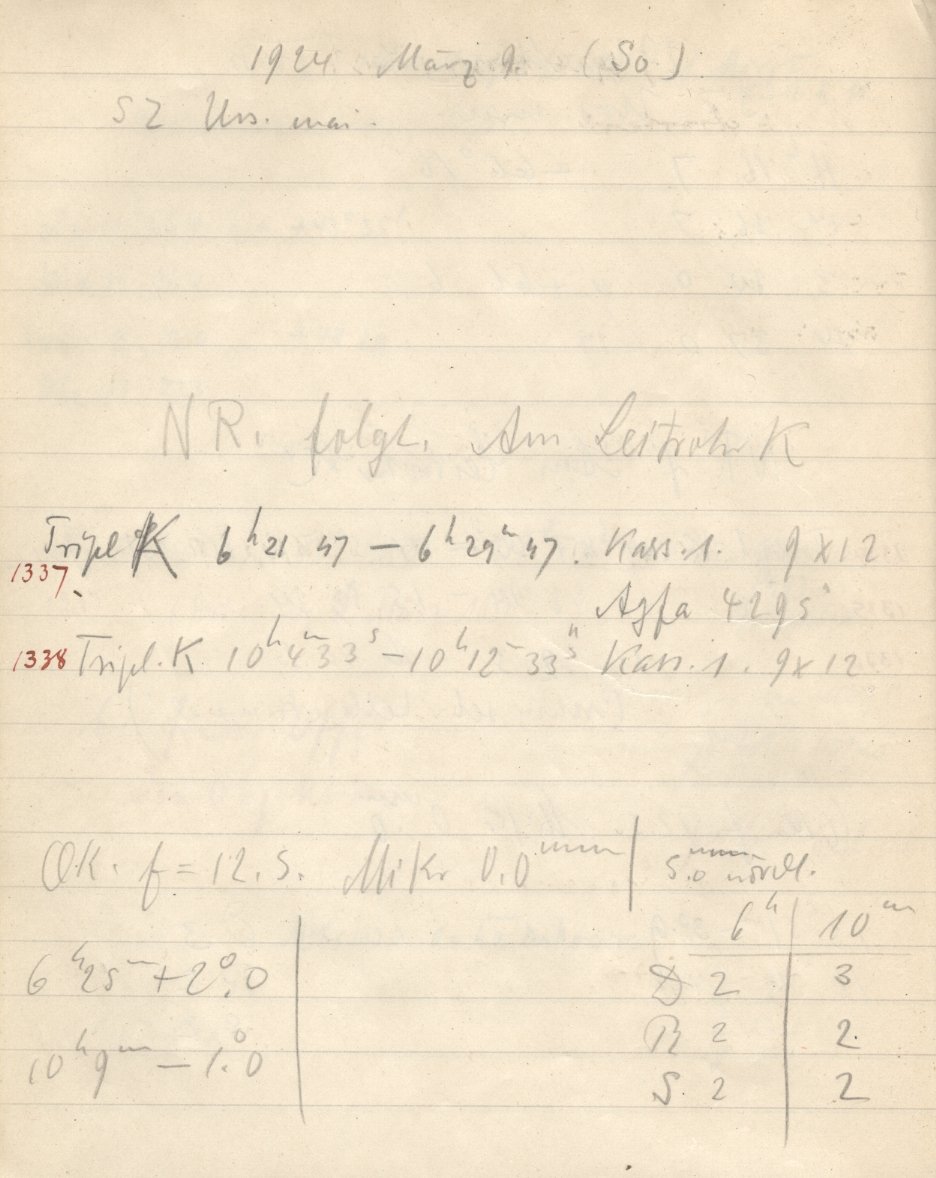 1924 März 9. (So)
SZ Urs. mai.
NR. folgt. Am Leitrohr K
1337 Tripl K 6h 21 47 — 6h 29m 47. Kass. 1. 9 x 12
Agfa 4295
1338 Tripl. K. 10h 4m 33s — 10h 12m 33s Kass. 1. 9 x 12
OK. f = 12.5. Mikr 0.0mm | 5.0mm nördl.
6h | 10m
6h 25m + 2°.0 D 2 | 3
R 2 | 2.
10h 9m — 1°.0
S 2 | 2